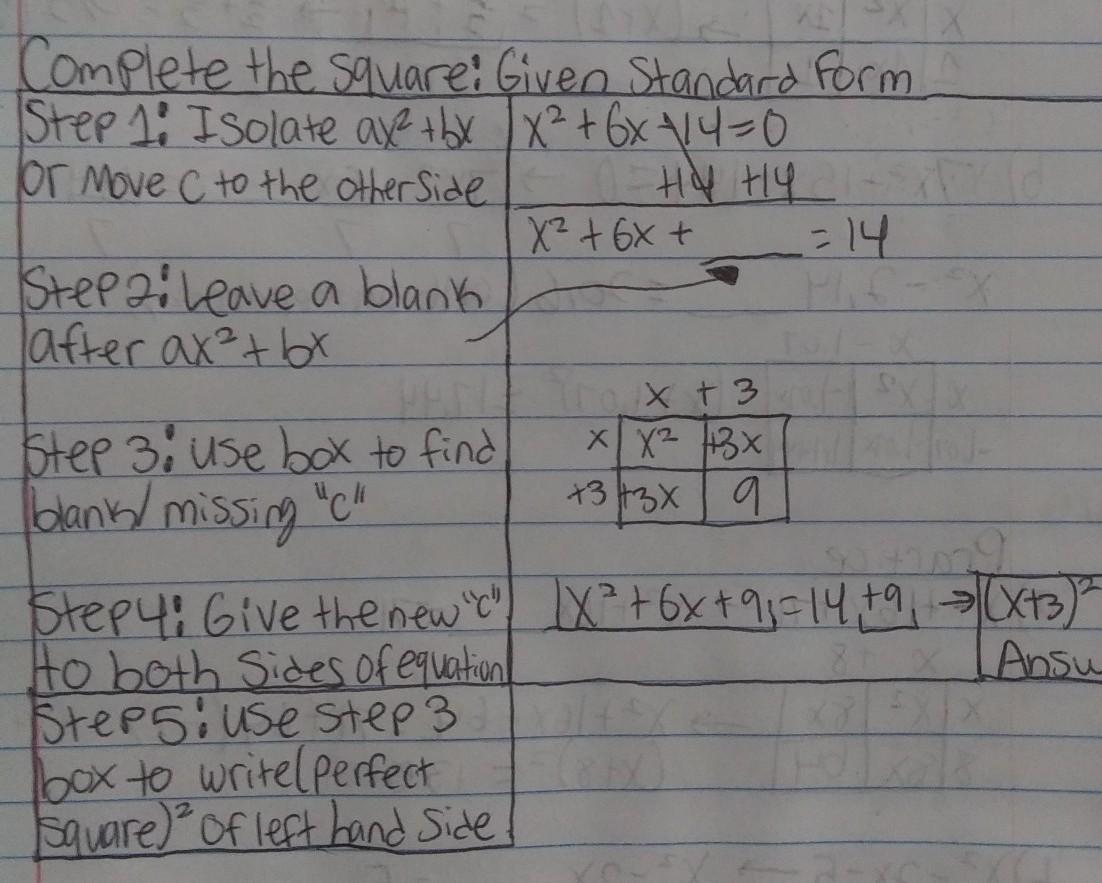 Complete the square: Given Standard Form
Step 1: Isolate ax² + bx
or Move C to the other side
x² + 6x - 14 = 0
+14 +14
x² + 6x + ___ = 14
Step 2: Leave a blank
after ax² + bx
Step 3: Use box to find
blank/missing "C"
x + 3
x x² +3x
+3 +3x 9
Step 4: Give the new "C"
to both sides of equation
x² + 6x + 9 = 14 + 9 → (x+3)²
Answ
Step 5: Use Step 3
box to write (perfect
square)² of left hand side